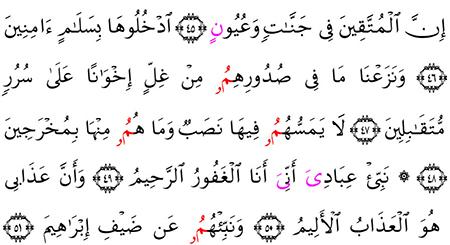 إِنَّ ٱلْمُتَّقِينَ فِى جَنَّٰتٍ وَعُيُونٍ ﴿٤٥﴾ ٱدْخُلُوهَا بِسَلَٰمٍ ءَامِنِينَ
﴿٤٦﴾ وَنَزَعْنَا مَا فِى صُدُورِهِمُۥ مِنْ غِلٍّ إِخْوَٰنًا عَلَىٰ سُرُرٍ
مُّتَقَٰبِلِينَ ﴿٤٧﴾ لَا يَمَسُّهُمُۥ فِيهَا نَصَبٌ وَمَا هُمُۥ مِنْهَا بِمُخْرَجِينَ
﴿٤٨﴾ ۞ نَبِّئْ عِبَادِىَ أَنِّىَ أَنَا ٱلْغَفُورُ ٱلرَّحِيمُ ﴿٤٩﴾ وَأَنَّ عَذَابِى
هُوَ ٱلْعَذَابُ ٱلْأَلِيمُ ﴿٥٠﴾ وَنَبِّئْهُمُۥ عَن ضَيْفِ إِبْرَٰهِيمَ ﴿٥١﴾